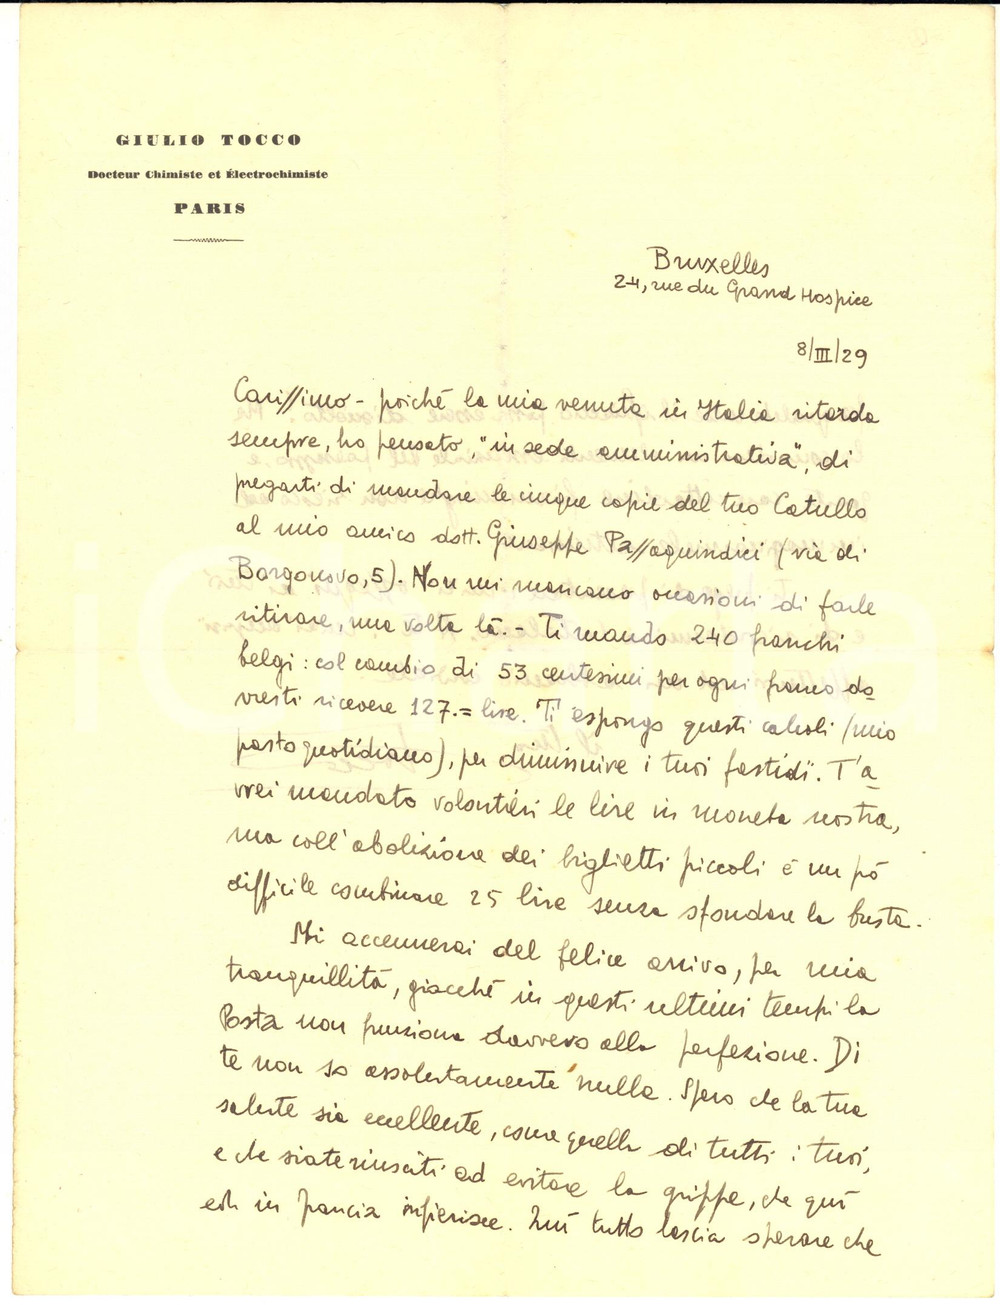 GIULIO TOCCO
Docteur Chimiste et Électrochimiste
PARIS
Bruxelles
24, rue du Grand Hospice
8/III/29
Carissimo - poiché la mia venuta in Italia ritarda
sempre, ho pensato, "in sede amministrativa", di
pregarti di mandare le cinque copie del tuo Catullo
al mio amico dott. Giuseppe Passaquindici (via di
Borgonovo, 5). Non mi mancano occasioni di farle
ritirare, una volta là. - Ti mando 240 franchi
belgi: col cambio di 53 centesimi per ogni franco do-
vresti ricevere 127.= lire. Ti espongo questi calcoli (mio
pasto quotidiano), per diminuire i tuoi fastidi. T'a-
vrei mandato volontieri le lire in moneta nostra,
ma coll'abolizione dei biglietti piccoli è un pò
difficile combinare 25 lire senza sfondare la busta.
Mi accennerai del felice arrivo, per mia
tranquillità, giacché in questi ultimi tempi la
Posta non funziona davvero alla perfezione. Di
te non so assolutamente nulla. Spero che la tua
salute sia eccellente, come quella di tutti i tuoi,
e che siate riusciti ad evitare la grippe, che quì
ed in Francia infierisce. Quì tutto lascia sperare che